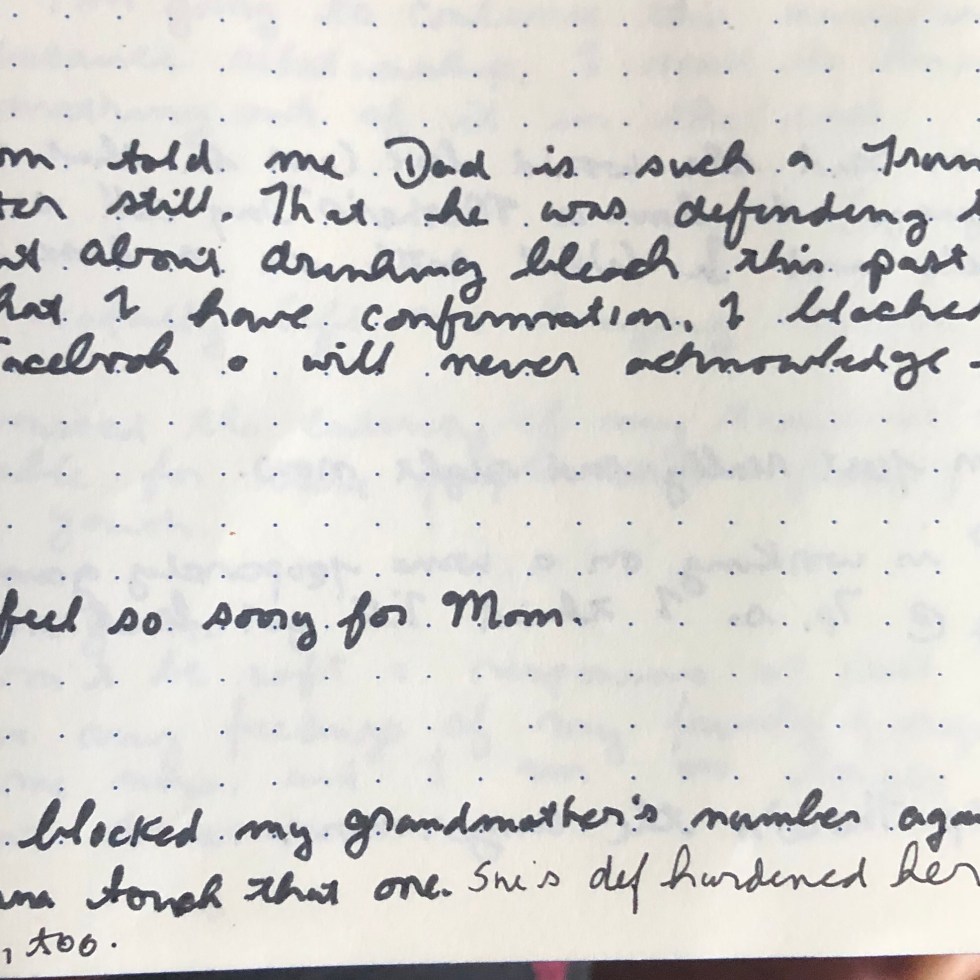 om told me Dad is such a Trum
ter still. That he was defending h
nt about drinking bleach this past
hat I have confirmation. I blocked
Facebook & will never acknowledge
feel so sorry for Mom.
blocked my grandmother's number aga
nna touch that one. She's def hardened her
, too.